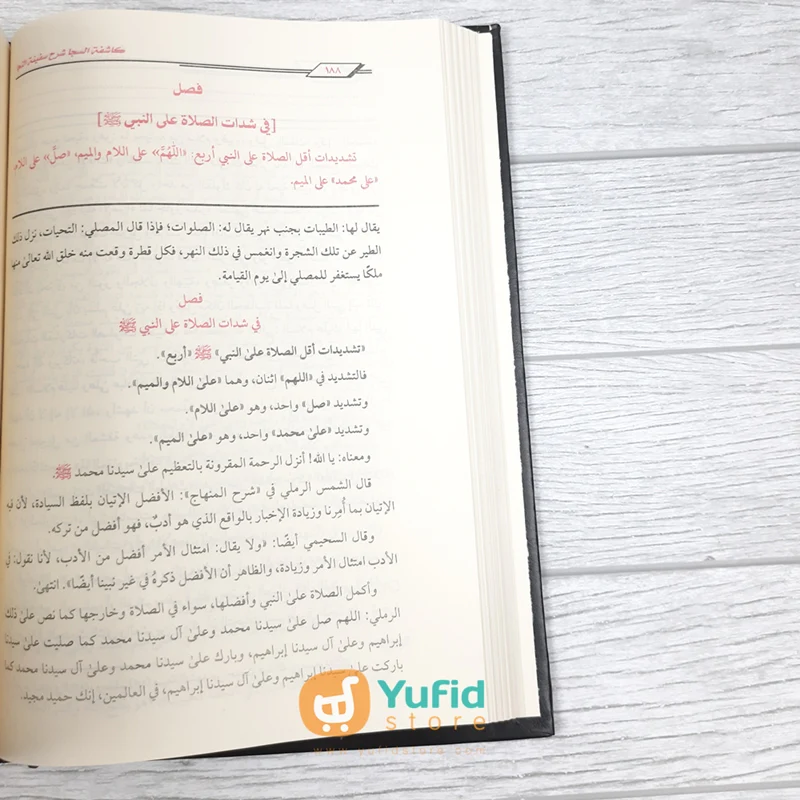 كاشفة السجا شرح سفينة النجا
١٨٨
فصل
[في شدات الصلاة على النبي ﷺ]
تشديدات أقل الصلاة على النبي أربع: «اللّهُمَّ» على اللام والميم، «صلِّ» على اللام
«على محمد» على الميم.
يقال لها: الطيبات بجنب نهر يقال له: الصلوات؛ فإذا قال المصلي: التحيات، نزل ذلك
الطير عن تلك الشجرة وانغمس في ذلك النهر، فكل قطرة وقعت منه خلق الله تعالىٰ منها
ملكًا يستغفر للمصلي إلىٰ يوم القيامة.
فصل
في شدات الصلاة على النبي ﷺ
«تشديدات أقل الصلاة علىٰ النبي» ﷺ «أربع».
فالتشديد في «اللهم» اثنان، وهما «علىٰ اللام والميم».
وتشديد «صل» واحد، وهو «علىٰ اللام».
وتشديد «علىٰ محمد» واحد، وهو «علىٰ الميم».
ومعناه: يا الله! أنزل الرحمة المقرونة بالتعظيم علىٰ سيدنا محمد ﷺ.
قال الشمس الرملي في «شرح المنهاج»: الأفضل الإتيان بلفظ السيادة، لأن فيه
الإتيان بما أُمِرنا وزيادة الإخبار بالواقع الذي هو أدبٌ، فهو أفضل من تركه.
وقال السحيمي أيضًا: «ولا يقال: امتثال الأمر أفضل من الأدب، لأنا نقول: في
الأدب امتثال الأمر وزيادة، والظاهر أن الأفضل ذكرهُ في غير نبينا أيضًا». انتهىٰ.
وأكمل الصلاة علىٰ النبي وأفضلها، سواء في الصلاة وخارجها كما نص علىٰ ذلك
الرملي: اللهم صل علىٰ سيدنا محمد وعلىٰ آل سيدنا محمد كما صليت علىٰ سيدنا
إبراهيم وعلىٰ آل سيدنا إبراهيم، وبارك علىٰ سيدنا محمد وعلىٰ آل سيدنا محمد كما
باركت علىٰ سيدنا إبراهيم وعلىٰ آل سيدنا إبراهيم، في العالمين، إنك حميد مجيد.
Yufid
store
www.yufidstore.com